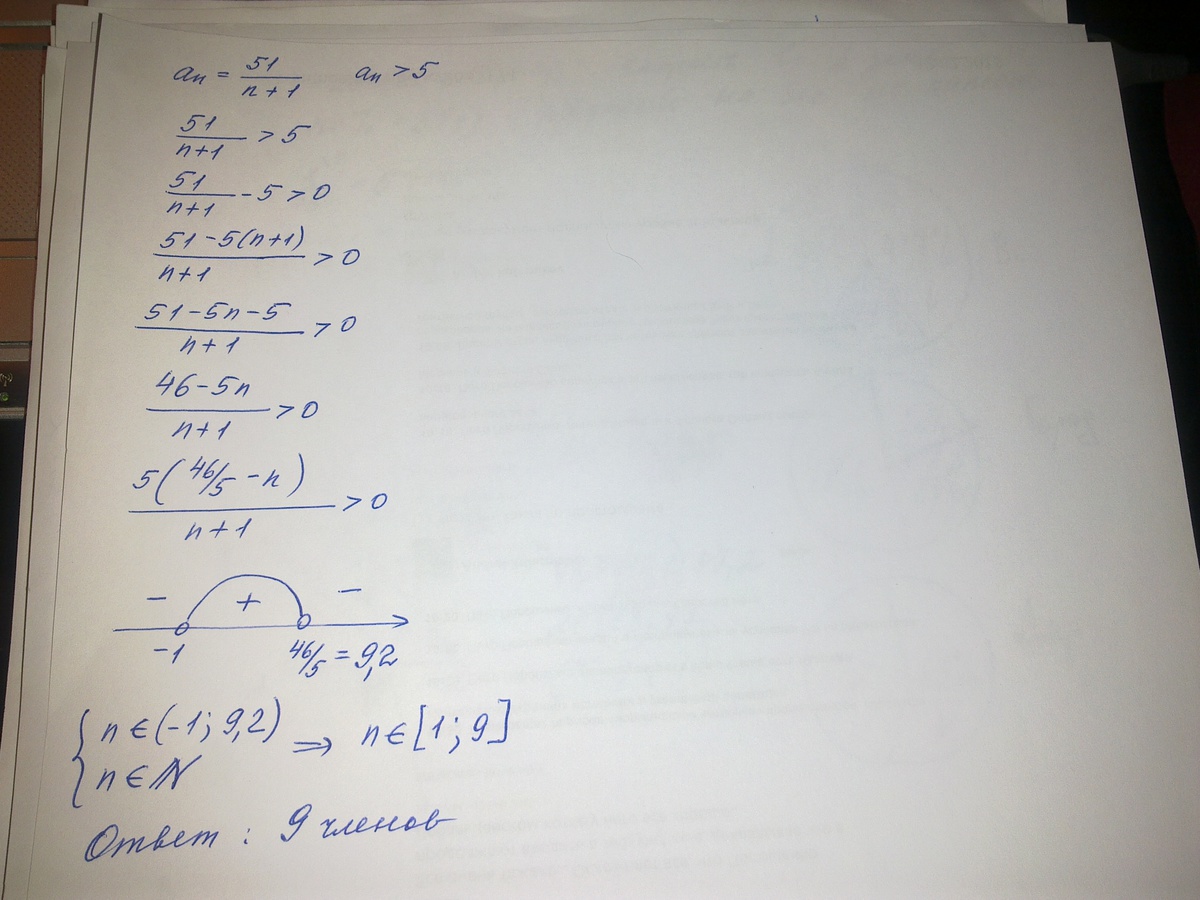 aₙ = 51/(n+1)    aₙ > 5
51/(n+1) > 5
51/(n+1) - 5 > 0
(51-5(n+1))/(n+1) > 0
(51-5n-5)/(n+1) > 0
(46-5n)/(n+1) > 0
5(46/5 - n)/(n+1) > 0
- + -
-1    46/5 = 9,2
{ n ∈ (-1; 9,2) ⇒ n ∈ [1; 9]
n ∈ N
Ответ: 9 членов